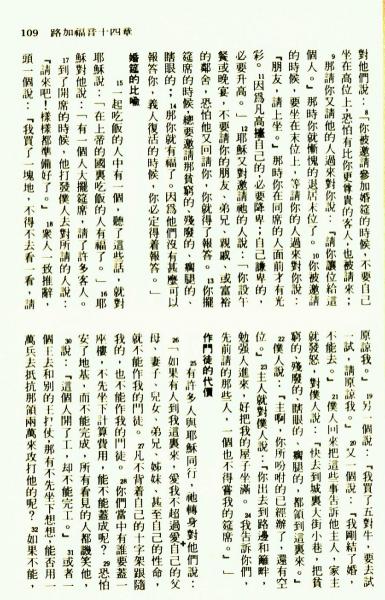 109 路加福音十四章
對他們說：「8你被邀請參加婚筵的時候，不要自己
坐在高位上；恐怕有比你更尊貴的客人也被請來；
9那請你又請他的人過來對你說：『請你讓位給這
個人。』那時你就慚愧的退居末位了。10你被邀請
的時候，要坐在末位上，等請你的人過來對你說：
『朋友，請上坐。』那時你在同席的人面前才有光
彩。11因爲凡高擡自己的，必要降卑；自己謙卑的，
必要升高。」12耶穌又對邀請祂的說：「你設午
餐或晚宴，不要請你的朋友，弟兄，親戚，或富裕
的鄰舍，恐怕他又回請你，你就得了報答。13你擺
筵席的時候，總要邀請那貧窮的，殘廢的，瘸腿的，
瞎眼的；14那你就有福了。因爲他們沒有甚麽可以
報答你，義人復活的時候，你必定得着報答。」
婚筵的比喻
15一起吃飯的人中有一個，聽了這些話，就對
耶穌說：「在上帝的國裏吃飯的人有福了。」16耶
穌對他說：「有一個人大擺筵席，請了許多客人。
17到了開席的時候，他打發僕人去對所請的人說：
『請來吧！樣樣都準備好了。』18衆人一致推辭，
頭一個說：『我買了一塊地，不得不去看一看，請
原諒我。』19另一個說：『我買了五對牛，要去試
一試，請原諒我。』20又一個說：『我剛結了婚，
不能去。』21僕人回來把這些事告訴他主人，家主
就發怒，對僕人說：『快去到城裏大街小巷，把貧
窮的，殘廢的，瞎眼的，瘸腿的，都領到這裏來。』
22僕人說：『主啊，你所吩咐的已經辦了，還有空
位。』23主人就對僕人說：『你出去到路邊和籬畔，
勉強人進來，好把我的屋子坐滿。24我告訴你們，
先前請的那些人，一個也不得嘗我的筵席。』」
作門徒的代價
25有許多人與耶穌同行，祂轉身對他們說：
26「如果有人到我這裏來，愛我不超過愛自己的父
母，妻子，兒女，弟兄，姊妹，甚至自己的性命，
就不能作我的門徒。27凡不背着自己的十字架跟隨
我的，也不能作我的門徒。28你們當中有誰要蓋一
座樓，不先坐下計算費用，能不能蓋成呢？29恐怕
安了地基，而不能完成，所有看見的人都譏笑他，
30說：『這個人開了工，却不能完工。』31或者一
個王去和別的王打仗，那有不先坐下想想，能否用一
萬兵去抵抗那領兩萬來攻打他的呢？32如果不能，